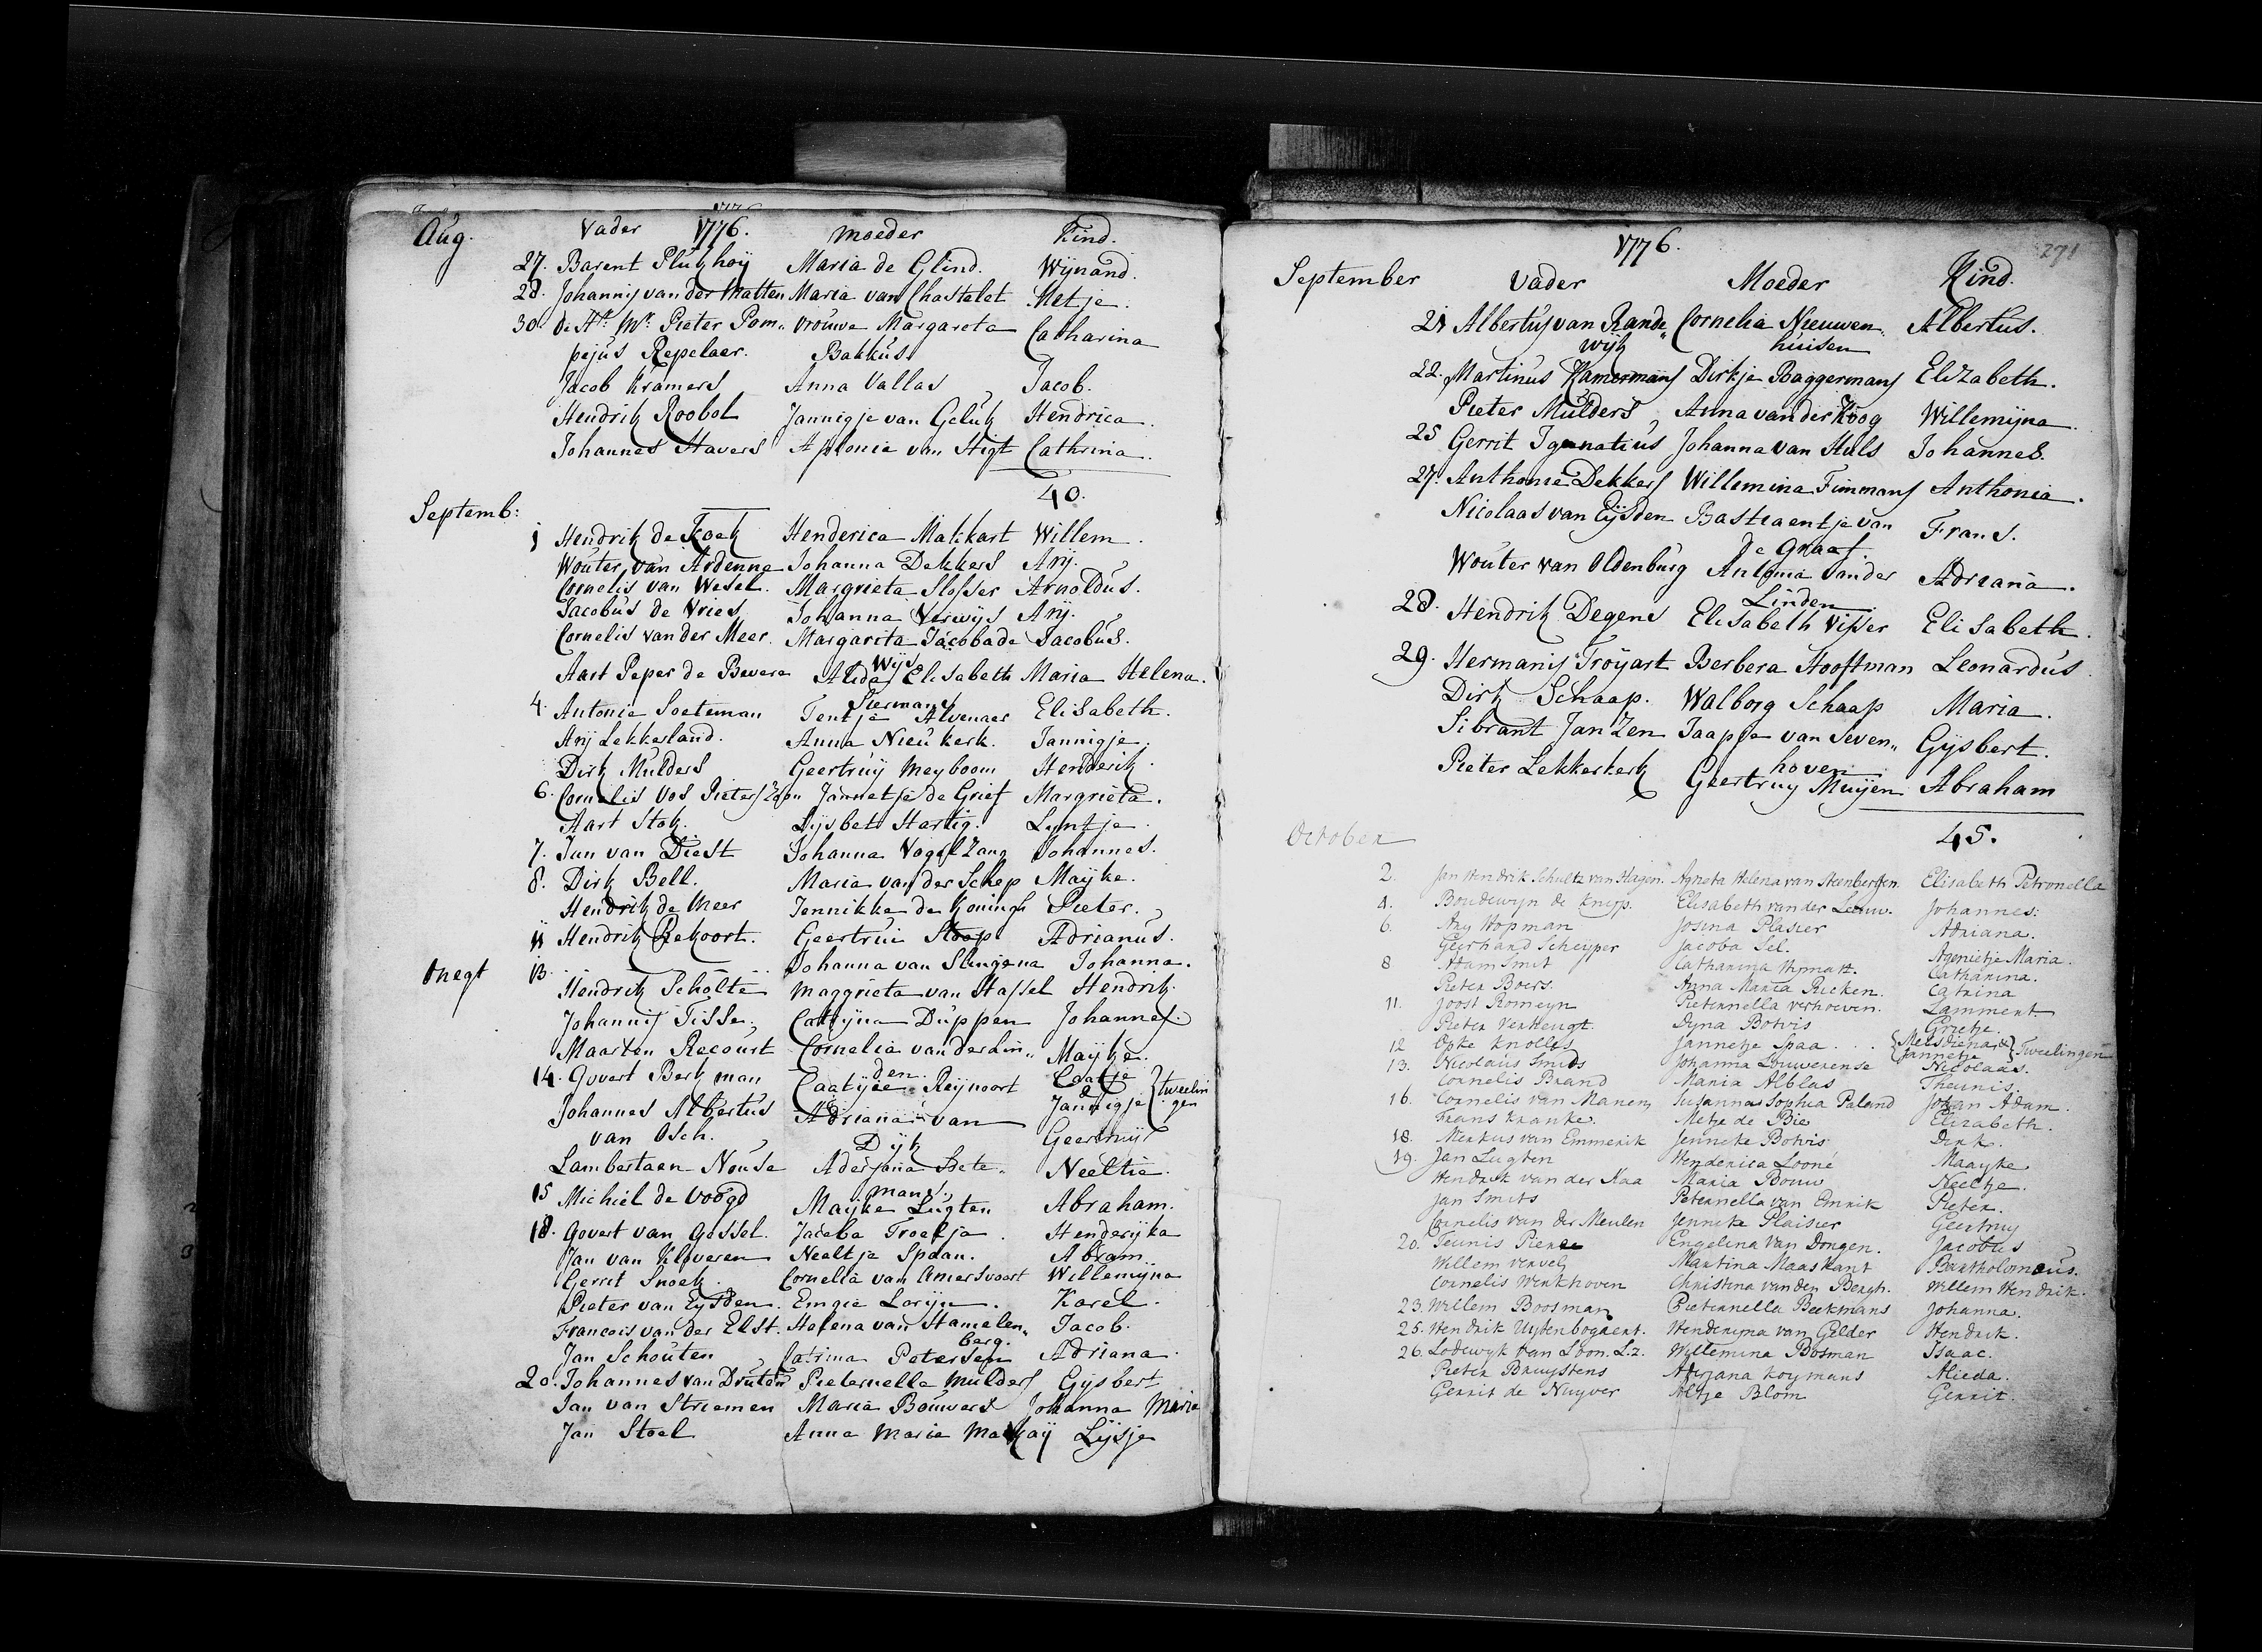 Aug. Vader 1776. Moeder Kind.
27. Barent Plukhoij Maria de Glind. Wijnand.
28. Johannis van der Matten Maria van Chastelet Metje.
30. de Hr. Mr. Pieter Pom„ Vrouwe Margareta Catharina
pejus Repelaer. Bakkus
Jacob Kramers Anna Vallas Jacob.
Hendrik Roobol Jannigje van Geluk Hendrica.
Johannes Stavers Aplonia van Higt Cathrina.
40.
Septemb:
1 Hendrik de Koek Henderica Makkart Willem.
Wouter van Ardenne Johanna Dekkers Arij.
Cornelis van Wesel. Margrieta Slosser Arnoldus.
Jacobus de Vries Johanna Verwijs Arij.
Cornelis van der Meer. Margarita Jacoba de Jacobus.
Wijs
Aart Peper de Bevere Alida Elisabeth Maria Helena.
Siermans
4. Antonie Soeteman Tentje Alvenaer Elisabeth.
Arij Lekkerland. Anna Nieukerk. Jannigje.
Dirk Mulders Geertruij Meyboom Henderik.
6. Cornelis Vos Pieters Zoon Jannetje de Grief Margrieta.
Aart Stok. Lijsbet Hartig. Lyntje.
7. Jan van Diest Johanna Vogelzang Johannes.
8. Dirk Bell. Maria van der Schep Maijke.
Hendrik de Meer Jennikke de Konings Pieter.
11 Hendrik Rekoort. Geertrui Stoop Adrianus.
Onegt 13. Johanna van Slingena Johanna.
Hendrik Scholte Maggrieta van Stassel Hendrik.
Johannis Tisse. Catrijna Duppen Johannes.
Maarten Recourt Cornelia van der Lin„ Maijke.
den.
14. Govert Berkman Caatijee Reijnoort Caatje & Jannigje } tweelin
gen
Johannes Albertus Adriana van Geertruij
van Osch. Dijk
Lambertaen Nouse Aderjana Bete„ Neeltie.
mans.
15 Michiel de Voogd Maijke Lugten Abraham.
18. Govert van Gossel. Jacoba Troetja. Henderijka
Jan van Kloveren Neeltje Spaan. Abram
Gerret Snoek. Cornelia van Amersvoort Willemijna
Pieter van Eysden. Emgie Lorijn. Karel.
Francois van der Elst. Helena van Stamelen„ Jacob.
berg.
Jan Schouten Catrina Petersen Adriana.
20. Johannes van Druten Pieternella Mulders Gijsbert
Jan van Striemen Maria Bouwers Johanna Maria
Jan Stoel Anna Maria Mackaij Lijsje
1776. 271
September Vader Moeder Kind.
21 Albertus van Rande„ Cornelia Nieuwen„ Albertus.
wijk huisen
22. Martinus Kamermans Dirkje Baggermans Elizabeth.
Pieter Mulders Anna van der Koog Willemijna.
25 Gerrit Igenatius Johanna van Huls Johannes.
27. Anthonie Dekkers Willemina Timmans Anthonia.
Nicolaas van Eijsden Bastiaentje van Frans.
de Graaf.
Wouter van Oldenburg Antonia van der Adriana.
Linden
28. Hendrik Degens Elisabeth Visser Elisabeth.
29. Hermanis Troijart Berbera Hooftman Leonardus.
Dirk Schaap. Walborg Schaap Maria.
Sibrant Janzen Jaapje van Seven„ Gijsbert.
hoven
Pieter Lekkerkerk Geertruy Muijen Abraham
45.
October
2. Jan Hendrik Schultz van Hagen. Agneta Helena van Steenbergen. Elisabeth Petronella
4. Boudewyn de Knyp. Elisabeth van der Leeuw. Johannes.
6. Ary Hopman Josina Plasier Adriana.
Geerhard Scheyper Jacoba Sel. Agenietje Maria.
8 Adam Smit Catharina Hymatt. Catharina.
Pieter Boers. Anna Maria Ricken. Catrina
11. Joost Romeyn Pieternella Verhoeven. Lammert
Pieter Verheugt. Dyna Botvis Grietje.
12 Opke Knolles Jannetje Spaa... { Meisdienar & Jannetje } Tweelingen
13. Nicolaus Smids Johanna Louwerense Nicolaas.
Cornelis Brand Maria Alblas Theunis.
16. Cornelis van Manen Susanna Sophia Paland Johan Adam.
Frans Kranke. Metje de Bie Elizabeth.
18. Merkus van Emmerik Jenneke Botvis Dirk.
19. Jan Lugten Henderica Looné Maayke
Hendrik van der Naa Maria Bouw Neeltje.
Jan Smits Peternella van Emrik Pieter.
Cornelis van der Meulen Jenneke Plaisier Geertruy
20. Teunis Pierse Engelina van Dongen. Jacobus
Willem Vervel Martina Maaskant Bartholomeus.
Cornelis Werkhoven Christina van den Bergh. Willem Hendrik.
23. Willem Boosman Pieternella Beekmans Johanna.
25. Hendrik Uytenbogaert. Henderyna van Gelder Hendrik.
26. Lodewyk van Loon. L.z. Willemina Bosman Isaac.
Pieter Bruystens Arjana Koymans Alieda.
Gerrit de Nuyver Altje Blom Gerrit.